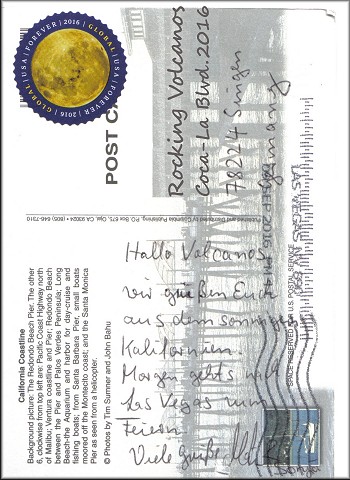 GLOBAL | USA | FOREVER | 2016 | GLOBAL | USA | FOREVER | 2016
POST C
Rocking Volcanos
Coca-La Blvd. 2016
78224 Singen
Germany
Published and Distributed by Columbia Publishing, P.O. Box 575, Ojai, CA 93024 • (805) 646-7310
Hallo Volcanos,
wir grüßen Euch
aus dem sonnigen
Kalifornien.
Morgen gehts
Las Vegas
Feiern.
Viele Grüße
SPACE RESERVED FOR U.S. POSTAL SERVICE
California Coastline
Background picture: The Redondo Beach Pier. The other
6, clockwise from top left are: Pacific Coast Highway north
of Malibu; Ventura coastline and Pier; Redondo Beach
between the Pier and Palos Verdes Peninsula; Long
Beach-the Aquarium and harbor for day-cruise and
fishing boats; from Santa Barbara Pier, small boats
moored off the Montecito coast; and the Santa Monica
Pier as seen from a helicopter.
© Photos by Tim Sumner and John Bahu